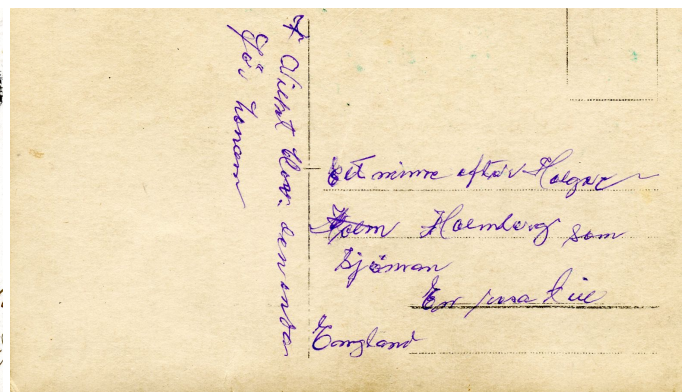 Ett minne efter Holger
Holm Holmberg som
Sjöman
En resa till
England
blev den enda
för honom